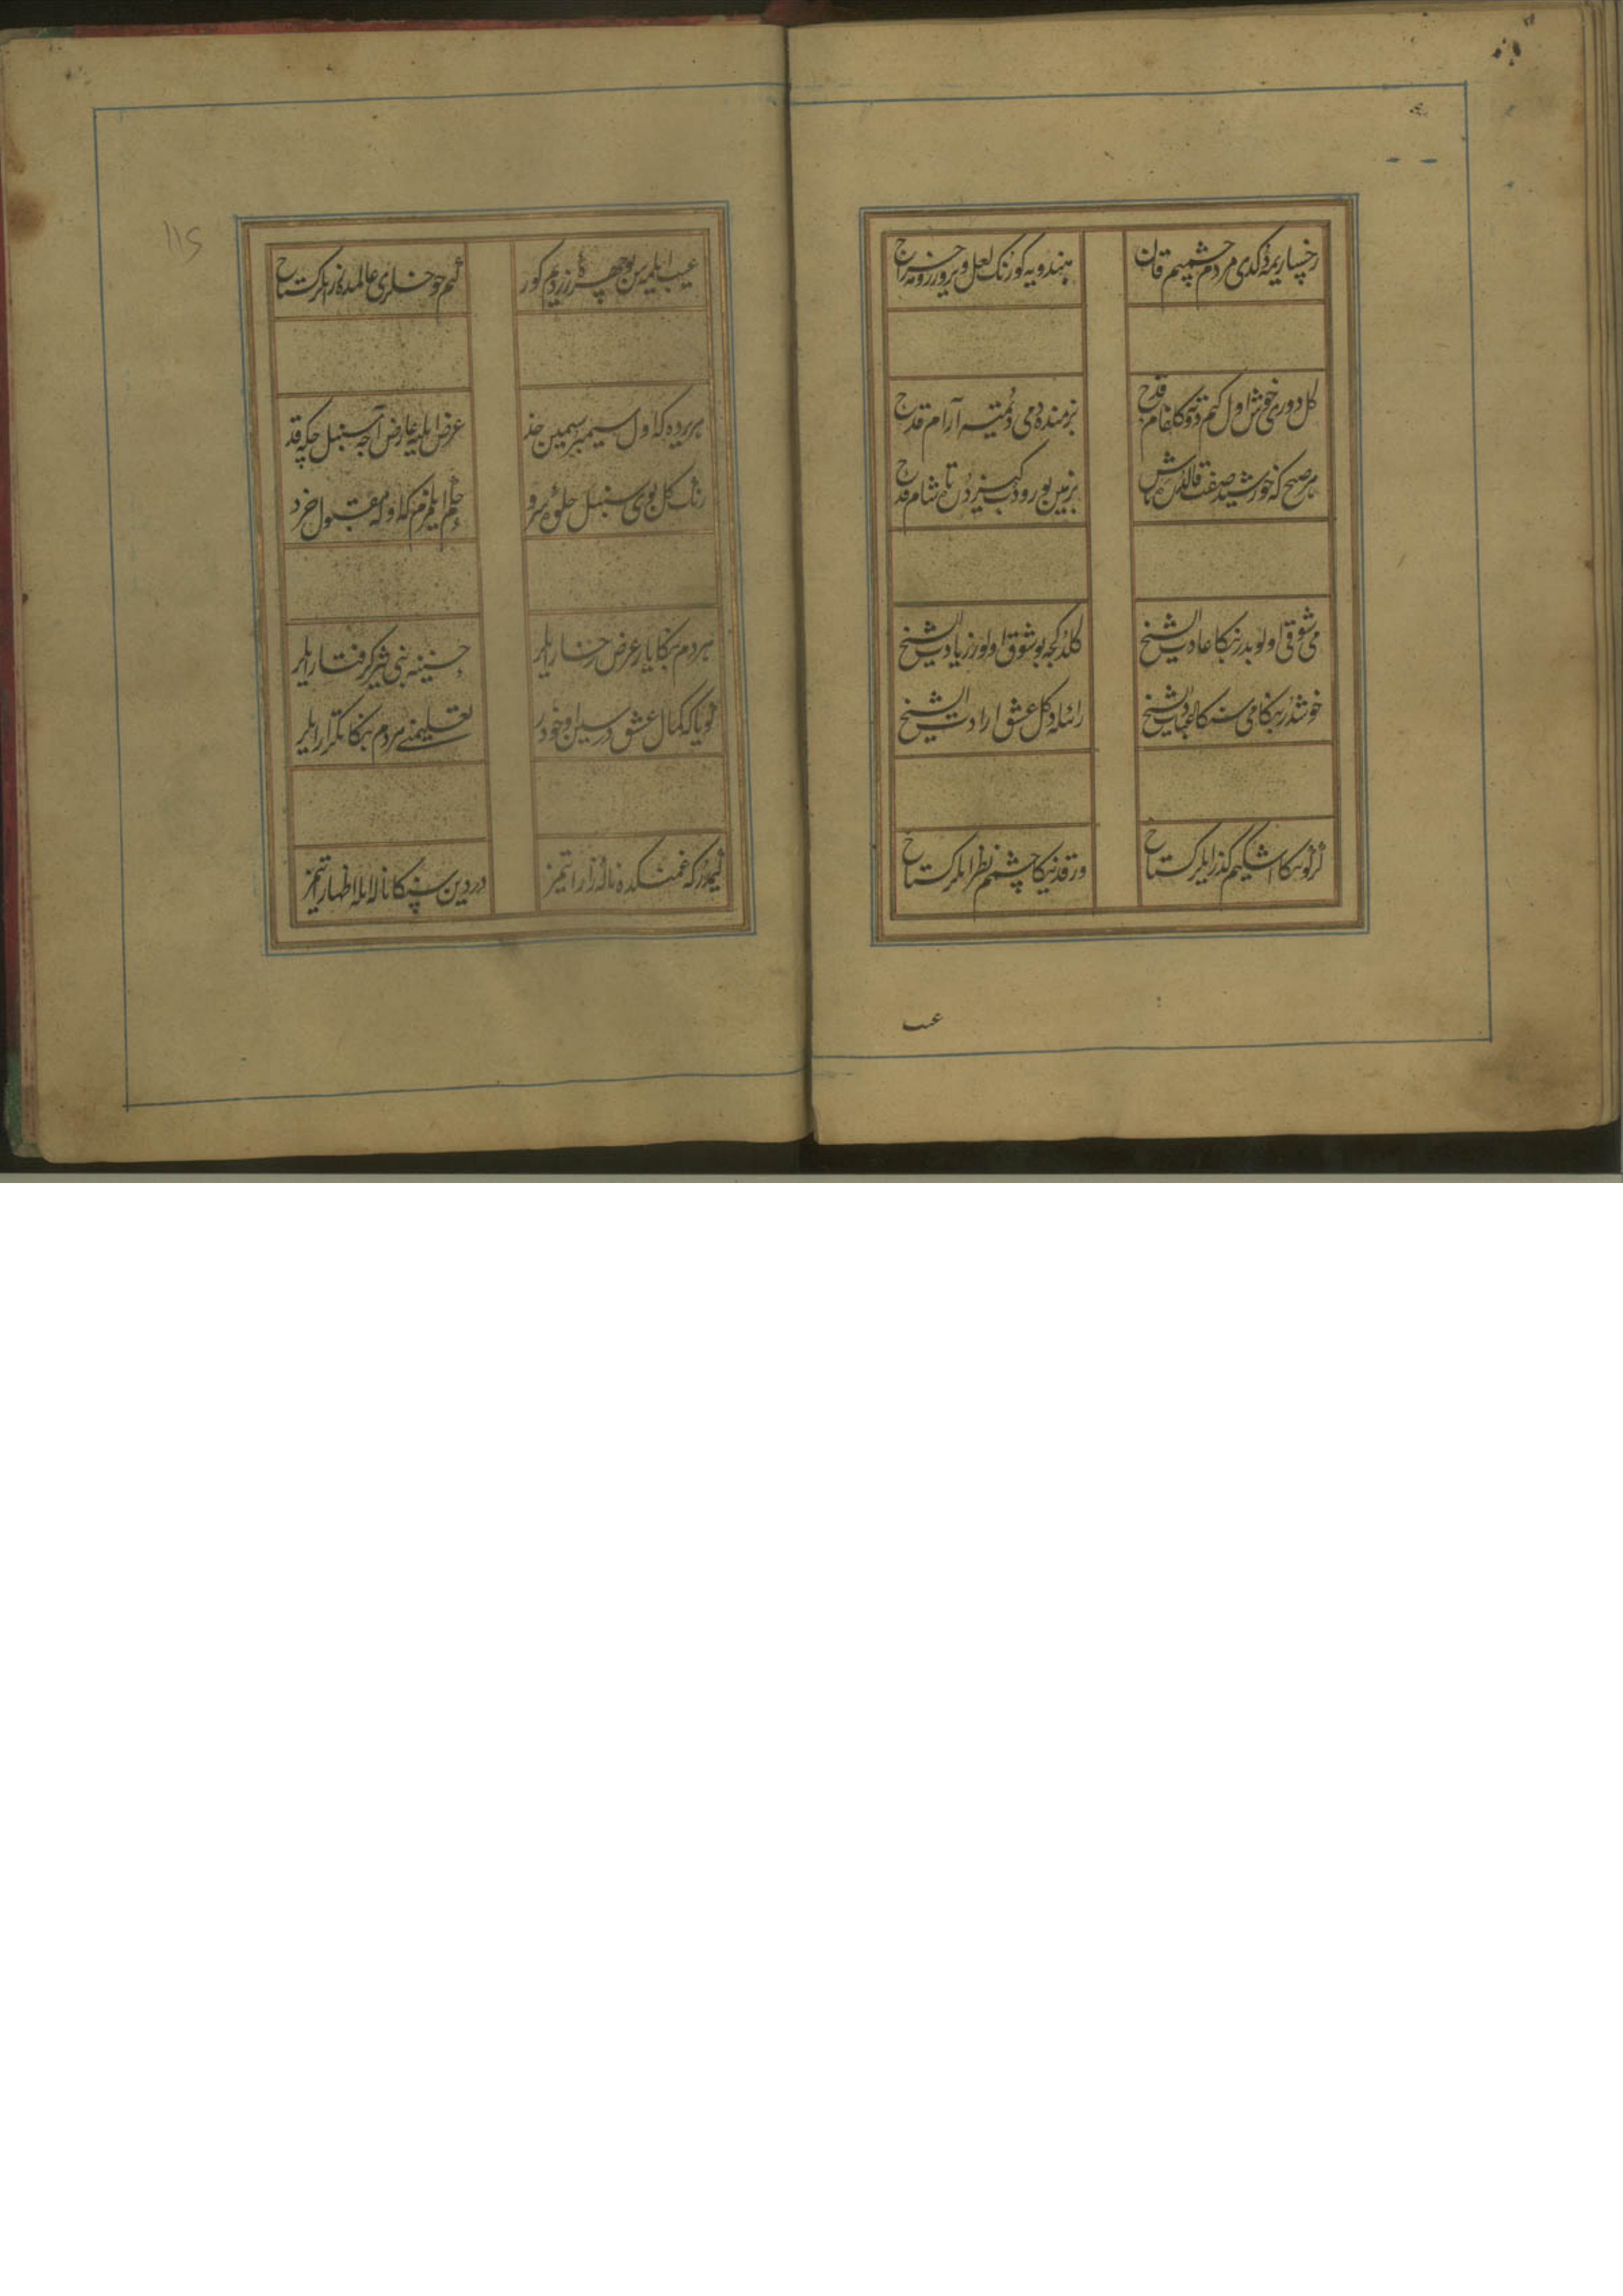 رخساریمه توکدی مردم چشمیم قان
هندویه کو رنک لعل ویرور رومه خراج
کل دوری خوش اول کیم توته کلفام قدح
بزمنده دمی دوتمیه آرام قدح
هر صبح که خورشید صفت قالدرسه باش
بزمین یورودب کیزدرن تا شام قدح
می شوقی اولوبدر بنکا عادت ای شیخ
کلدکجه بو شوق اولور زیادت ای شیخ
خوشدر بنکا می سنکا عبادت ای شیخ
رائله دکل عشق ارادت ای شیخ
کر کوسکا اشکیم کذر ایلر کستاخ
ور قدنیکا چشمم نظر ایلر کستاخ
عیب
عیب ایلمه سن بو چهره زردم کور
کیم خوبلری عالمده زر ایلر کستاخ
هر یرده که اول سیمبر سیمین خد
عرض ایلیه عارض آچه سنبل چکه قد
رنک کل بوی سنبل جلوه سرو
حکم ایلمزم که اوله مقبول خرد
هر دم بنکا یار عرض رخسار ایلر
حسنینه بنی کرفتار ایلر
کویا که کمال عشق درسین اوخودر
تعلیمنی مردم بنکا تکرار ایلر
کیمدور که غمنکده ناله زار ایتمز
دردین سنکا نالایلا اظهار ایتمز